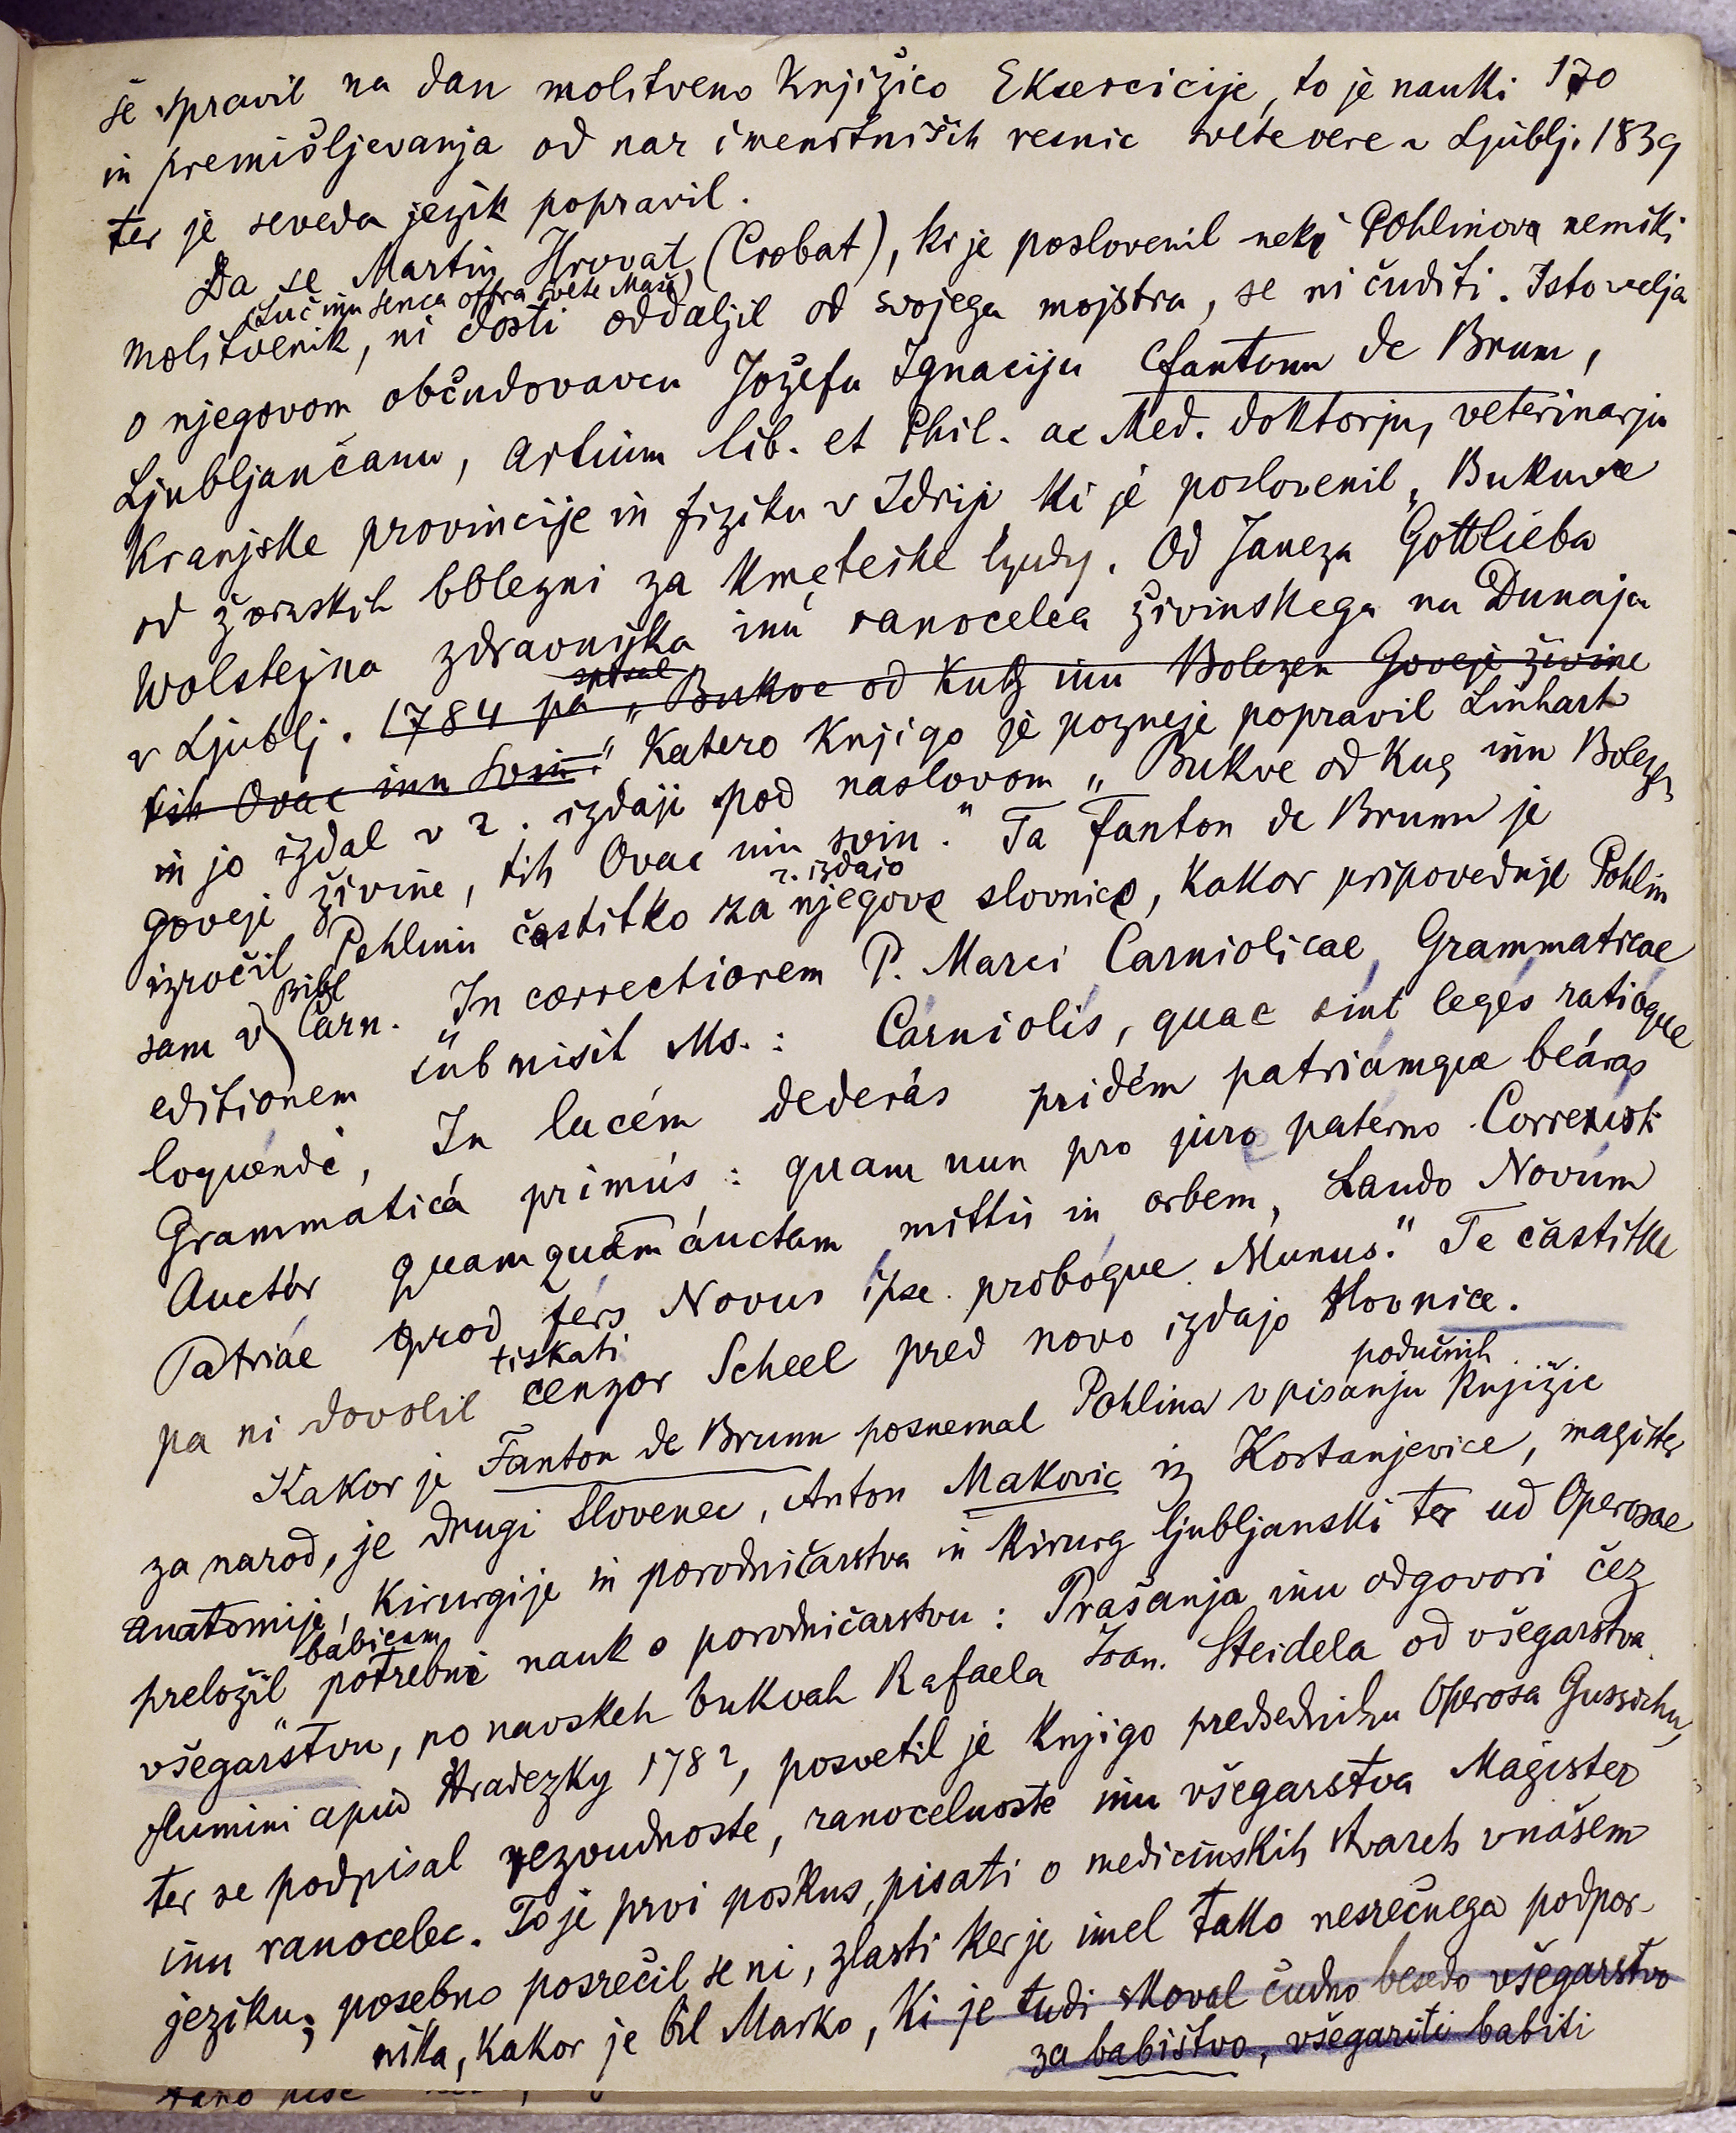 še spravil na dan molitveno knjižico Eksercicije, to je nauki 170
in premišljevanja od nar imenitniših resnic svete vere v Ljublj. 1839
ter je seveda jezik popravil.
Da se Martin Hrovat (Crobat), ki je poslovenil neki Pohlinova nemški
(Luč inu senca offra svete Maše)
molitvenik, ni dosti oddaljil od svojega mojstra, se ni čuditi. Isto velja
o njegovom občudovavcu Jožefu Ignaciju Fantonu de Brunn,
Ljubljančanu, artium lib. et Phil. ac Med. doktorju, veterinarju
Kranjske provincije in fiziku v Idriji ki je poslovenil „Bukuve
od žvinskih bolezni za kmeteske lyudy. Od Janeza Gottlieba
Wolstejna zdravnika inu ranocelca živinskega na Dunaja
v Ljublj. 1784 pa spisal „Bukve od Kug inu Bolezen Goveje živine
tih Ovac inu Svin." Katero knjigo je pozneje popravil Linhart
in jo izdal v 2. izdaji pod naslovom „Bukve od Kug inu Bolezn
goveji živine, tih Ovac inu svin." Ta Fanton de Brunn je
izročil Pohlinu častitko za 2. izdajo njegove slovnice, kakor pripoveduje Pohlin
sam v Bibl Carn. In correctiorem P. Marci Carniolicae Grammaticae
editionem submisit Ms.: „Carniolis, quae sint leges ratioque
loquendi, In lucem dederas pridem patriamque bearas
Grammatica primus: quam nun pro jure paterno Correxisti
Auctor quamquam auctam mittis in orbem, Laudo Novum
Patriae quod fers Novus ipse proboque Munus." Te častitke
pa ni dovolil tiskati cenzor Scheel pred novo izdajo slovnice.
Kakor je Fanton de Brunn posnemal Pohlina v pisanju podučnih knjižic
za narod, je drugi Slovenec, Anton Makovic iz Kostanjevice, magister
anatomije, kirurgije in porodničarstva in kirurg ljubljanski ter ud Operosae
preložil babicam potrebni nauk o porodničarstvu: Prašanja inu odgovori čez
všegarstvu, po navskeh bukvah Rafaela Joan. Steidela od všegarstva.
flumini apud Hradezky 1782, posvetil je knjigo predsedniku Operosa Gussichu,
ter se podpisal rezoudnoste, ranocelnoste inu všegarstva Magister
inu ranocelec. To je prvi poskus, pisati o medicinskih stvareh v našem
jeziku; posebno posrečil se ni, zlasti ker je imel tako nesrečnega podpor-
nika, kakor je bil Marko, ki je tudi skoval čudno besedo všegarstvo
za babištvo, všegariti babiti